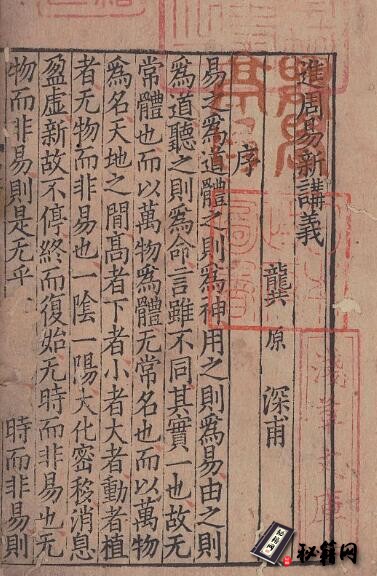 進周易新講義
龔原 深甫
序
易之為道體之則為神用之則為易由之則
為道聽之則為命言雖不同其實一也故无
常體也而以萬物為體无常名也而以萬物
為名天地之間髙者下者小者大者動者植
者无物而非易也一陰一陽大化密移消息
盈虛新故不停終而復始无時而非易也无
物而非易則是无乎 時而非易則
淺草文庫
秘籍网